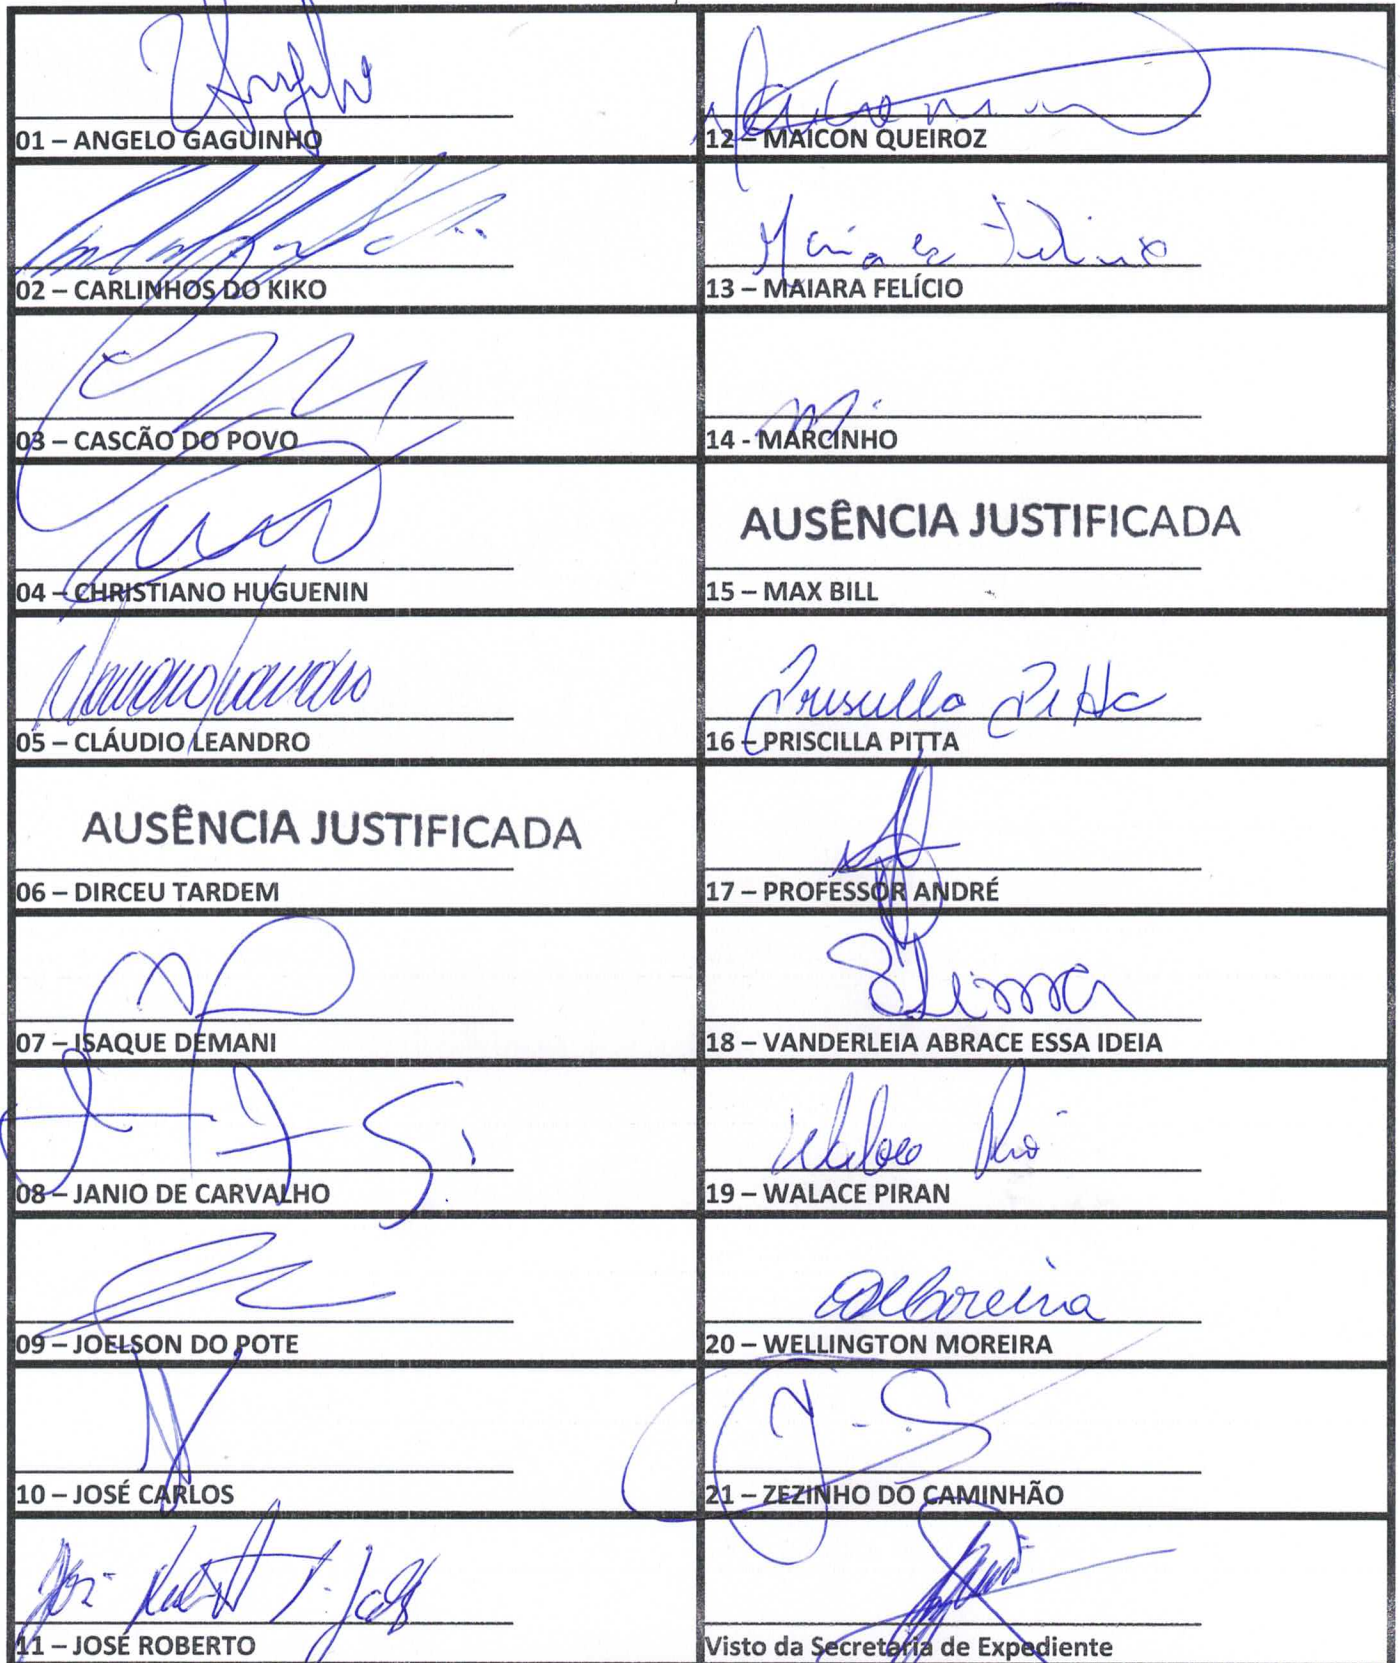 Angelo
01 – ANGELO GAGUINHO
02 – CARLINHOS DO KIKO
03 – CASCÃO DO POVO
04 – CHRISTIANO HUGUENIN
05 – CLÁUDIO LEANDRO
AUSÊNCIA JUSTIFICADA
06 – DIRCEU TARDEM
07 – ISAQUE DEMANI
08 – JANIO DE CARVALHO
09 – JOELSON DO POTE
10 – JOSÉ CARLOS
José
11 – JOSÉ ROBERTO
12 – MAICON QUEIROZ
13 – MAIARA FELÍCIO
14 - MARCINHO
AUSÊNCIA JUSTIFICADA
15 – MAX BILL
Priscilla Pitta
16 – PRISCILLA PITTA
17 – PROFESSOR ANDRÉ
18 – VANDERLEIA ABRACE ESSA IDEIA
19 – WALACE PIRAN
20 – WELLINGTON MOREIRA
21 – ZEZINHO DO CAMINHÃO
Visto da Secretaria de Expediente